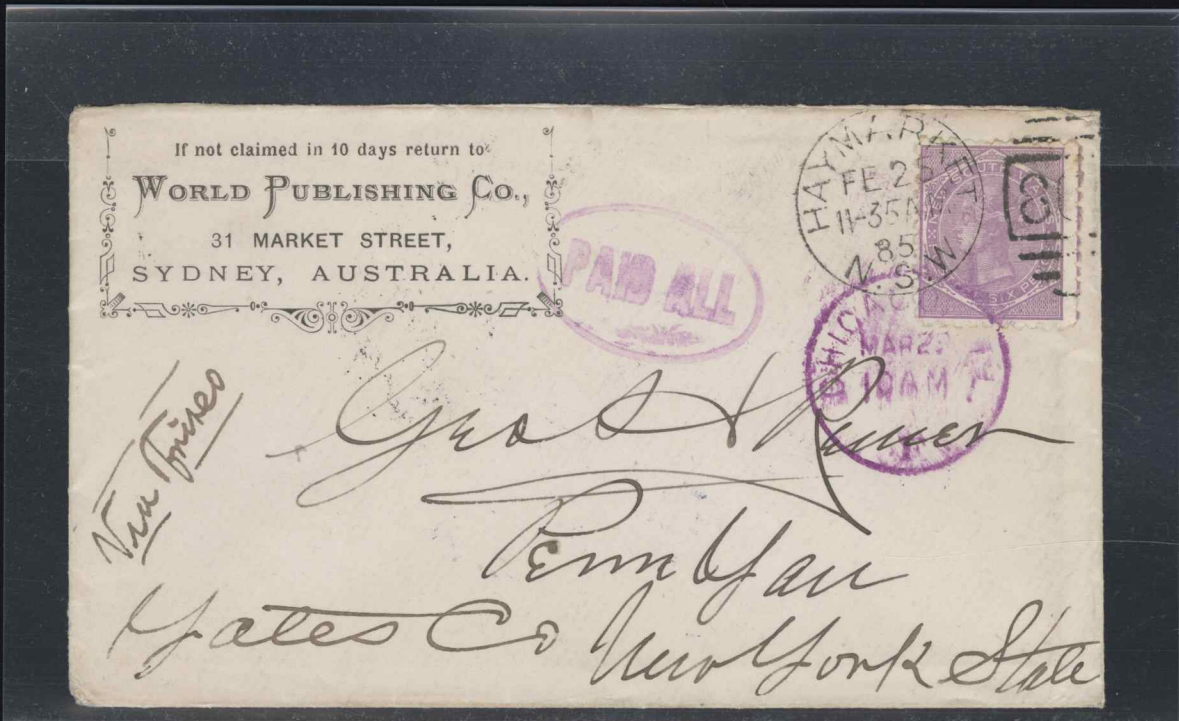 If not claimed in 10 days return to
WORLD PUBLISHING CO.,
31 MARKET STREET,
SYDNEY, AUSTRALIA.
PAID ALL
HAYMARKET
FE 2
11-35A
85
N.S.W
SIX PE
CHICAGO
MAR 2
10 AM
Via Frisco
Geo
Penn Yan
Yates Co New York State